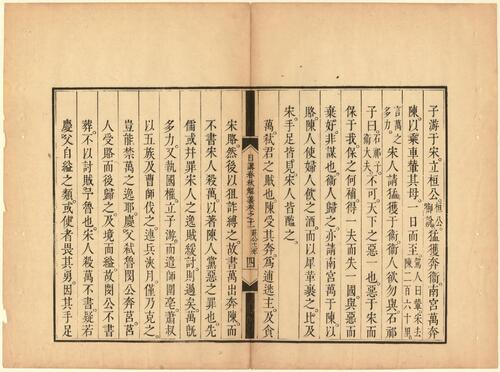 子游于宋立桓公桓公御說猛獲奔衛南宮萬奔
陳以乘車輦其母一日而至駕人曰輦宋去陳二百六十里
言萬之多力宋人請猛獲于衛衛人欲勿與石祁
子曰石祁子衛大夫不可天下之惡一也惡于宋而
保于我保之何補得一夫而失一國與惡而
棄好非謀也衛人歸之亦請南宮萬于陳以
賂陳人使婦人飲之酒而以犀革裹之比及
宋手足皆見宋人皆醢之
萬弒君之賊也陳受其奔為逋逃主及貪
日講春秋解義卷之十 莊公十二年 四
宋賂然後以狙詐縛之故書萬出奔陳而
不書宋人殺萬以著陳人黨惡之罪也先
儒或幷罪宋人之逸賊緩討則過矣萬旣
多力又執國權立子游而遣師圍亳蕭叔
以五族及曹師伐之連兵浹月僅乃克之
豈能禁萬之逸耶慶父弒魯閔公奔莒莒
人受賂而後歸之及境而縊故閔公不書
葬不以討賊予魯也宋人殺萬不書疑若
慶父自縊之類或使者畏其勇因其手足